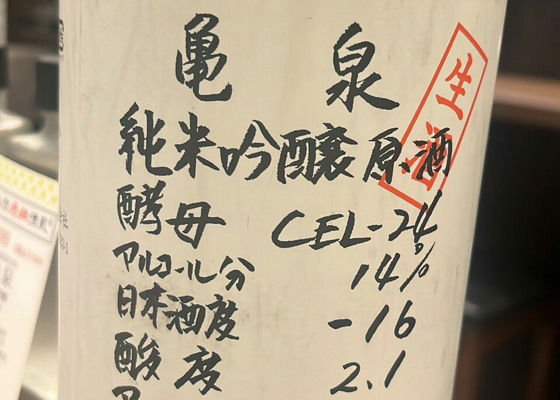 亀泉
純米吟醸原酒
生酒
酵母 CEL-24
アルコール分 14%
日本酒度 -16
酸度 2.1